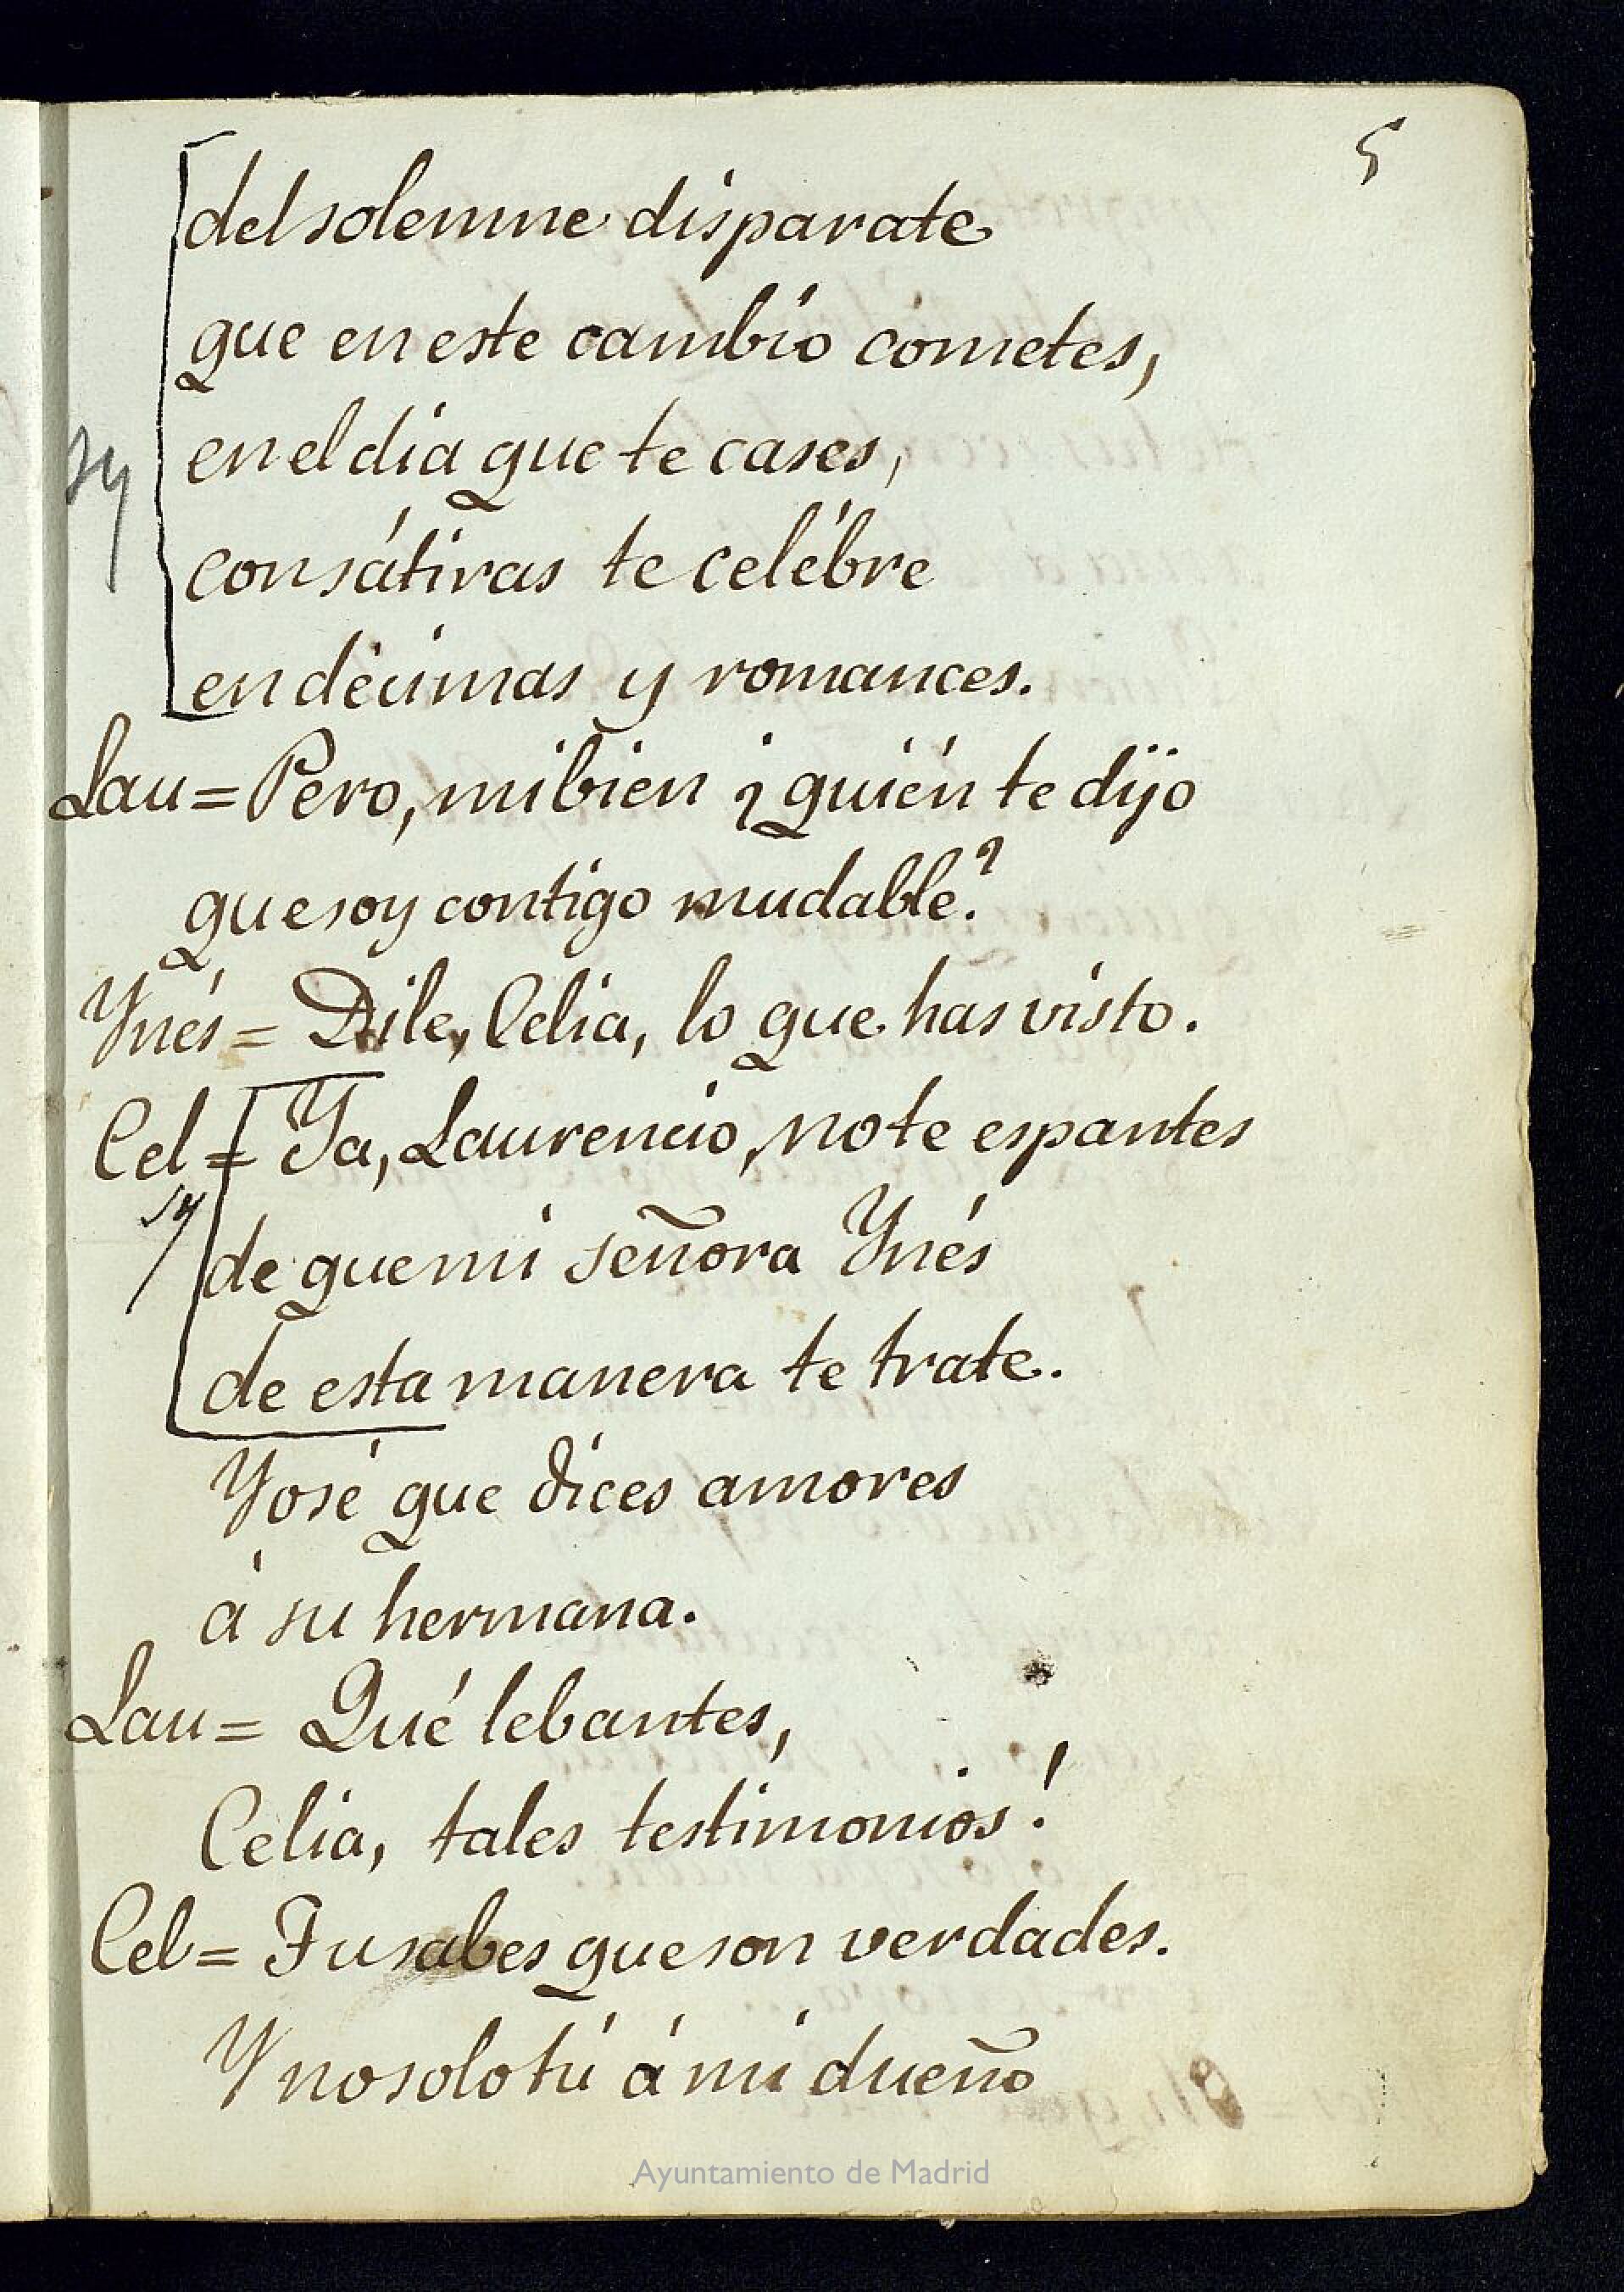 5
del solemne disparate
que en este cambio cometes,
en el dia que te cases,
sy
con sátiras te celébre
en décimas y romances.
Lau = Pero, mi bien ¿quién te dijo
que soy contigo mudable?
Ynés = Dile, Celia, lo que has visto.
Cel = Ya, Laurencio, no te espantes
sy
de que mi señora Ynés
de esta manera te trate.
Yo sé que dices amores
á su hermana.
Lau = Qué lebantes,
Celia, tales testimonios!
Cel = Tu sabes que son verdades.
Y no solo tú á mi dueño
Ayuntamiento de Madrid